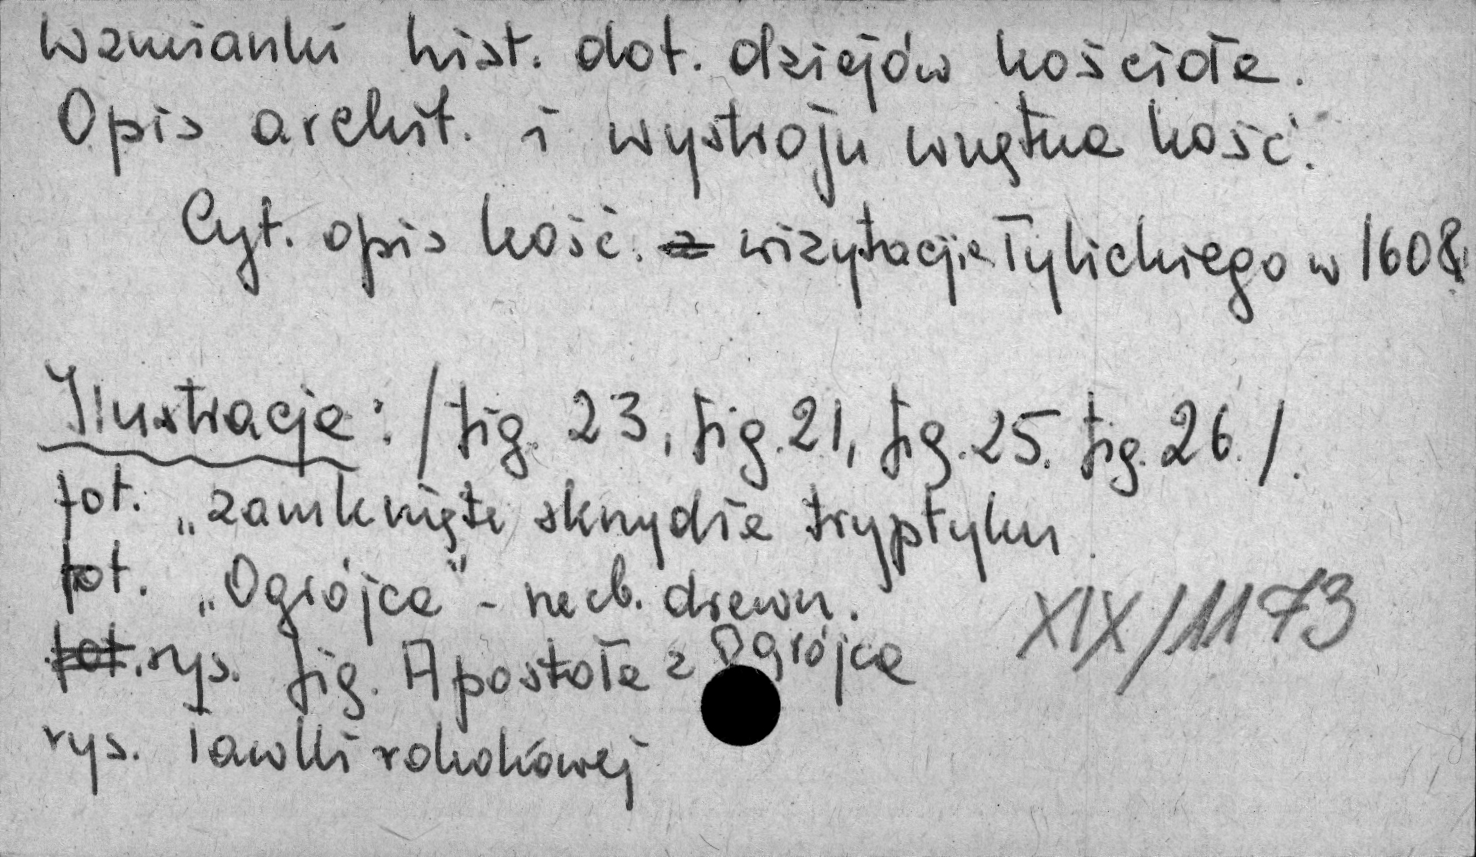 Wzmianki hist. dot. dziejów kościoła.
Opis archit. i wystroju wnętrza kość.
Cyt. opis kość. z wizytacji Tylickiego w 1608
Ilustracje: /fig. 23, fig. 21, fig. 25. fig. 26./.
fot. „zamknięte skrzydła tryptyku
fot. „Ogrójca" - rzeźb. drewn.
fot. rys. fig. Apostoła z Ogrójca
XIX/1173
rys. ławki rokokowej